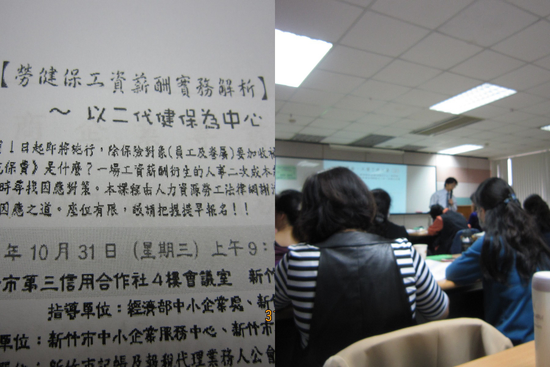 【勞健保工資薪酬實務解析】
~ 以二代健保為中心
1日起即將施行，除保險對象(員工及眷屬)要加收
充保費》是什麼？一場工資薪酬衍生的人事二次成本
時尋找因應對策。本課程由人力資源勞工法律
因應之道。座位有限，敬請把握提早報名！！
年 10 月 31 日 (星期三) 上午 9：
市第三信用合作社 4 樓會議室 新竹
指導單位：經濟部中小企業處、新
單位：新竹市中小企業服務中心、新竹市
單位：新竹市記帳及報稅代理業務人公會
3